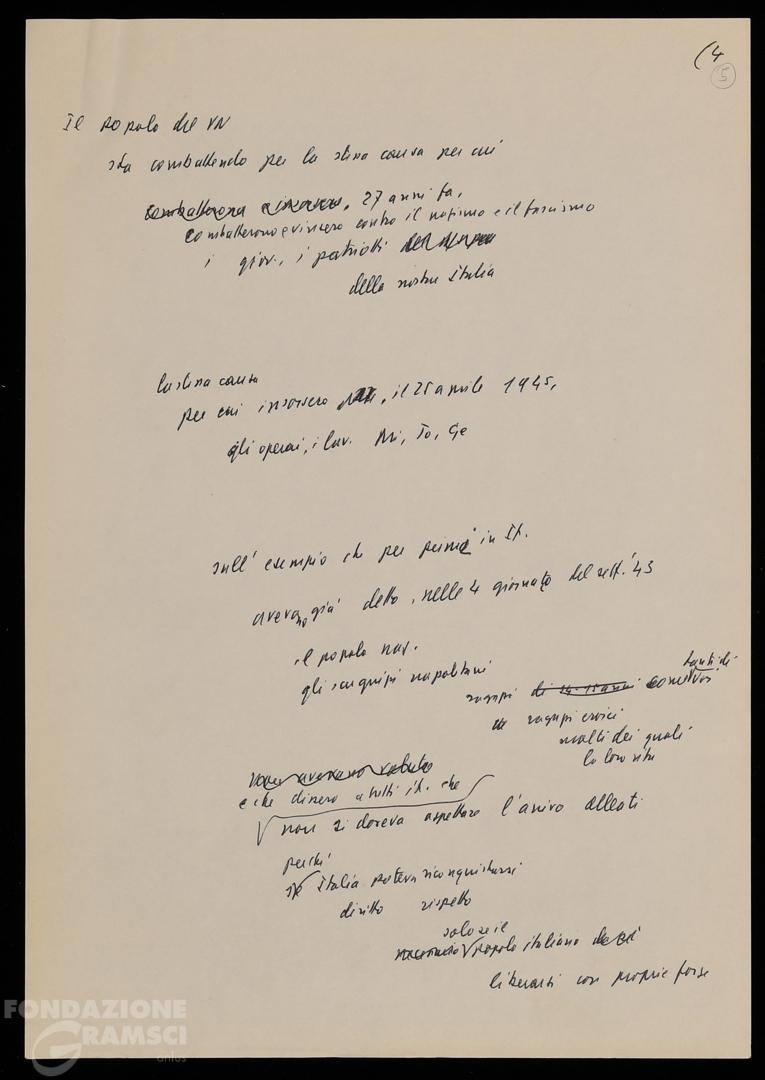 (4
5
Il popolo del VN
sta combattendo per la stessa causa per cui
combatterono e vinsero, 27 anni fa,
combatterono e vinsero contro il nazismo e il fascismo
i giov., i patrioti
della nostra Italia
la stessa causa
per cui insorsero, il 25 aprile 1945,
gli operai, i lav. Mi, To, Ge
sull'esempio che per primi in It.
avevano già detto, nelle 4 giornate del sett. '43
il popolo nap.
gli scugnizzi napoletani
tanti di
ragazzi di 14-15 anni come voi
ragazzi eroici
molti dei quali
la loro vita
non avevano voluto
e che dissero a tutti it. che
non si doveva aspettare l'arrivo alleati
perché
Italia poteva riconquistarsi
diritto rispetto
solo se il
popolo italiano
liberarsi con proprie forze
FONDAZIONE
GRAMSCI
onlus